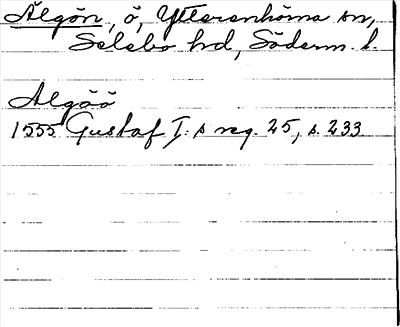 Älgön, ö, Ytterenhörna sn,
Selebo hd, Söderm. l.
Älgöö
1555 Gustaf I:s reg. 25, s. 233